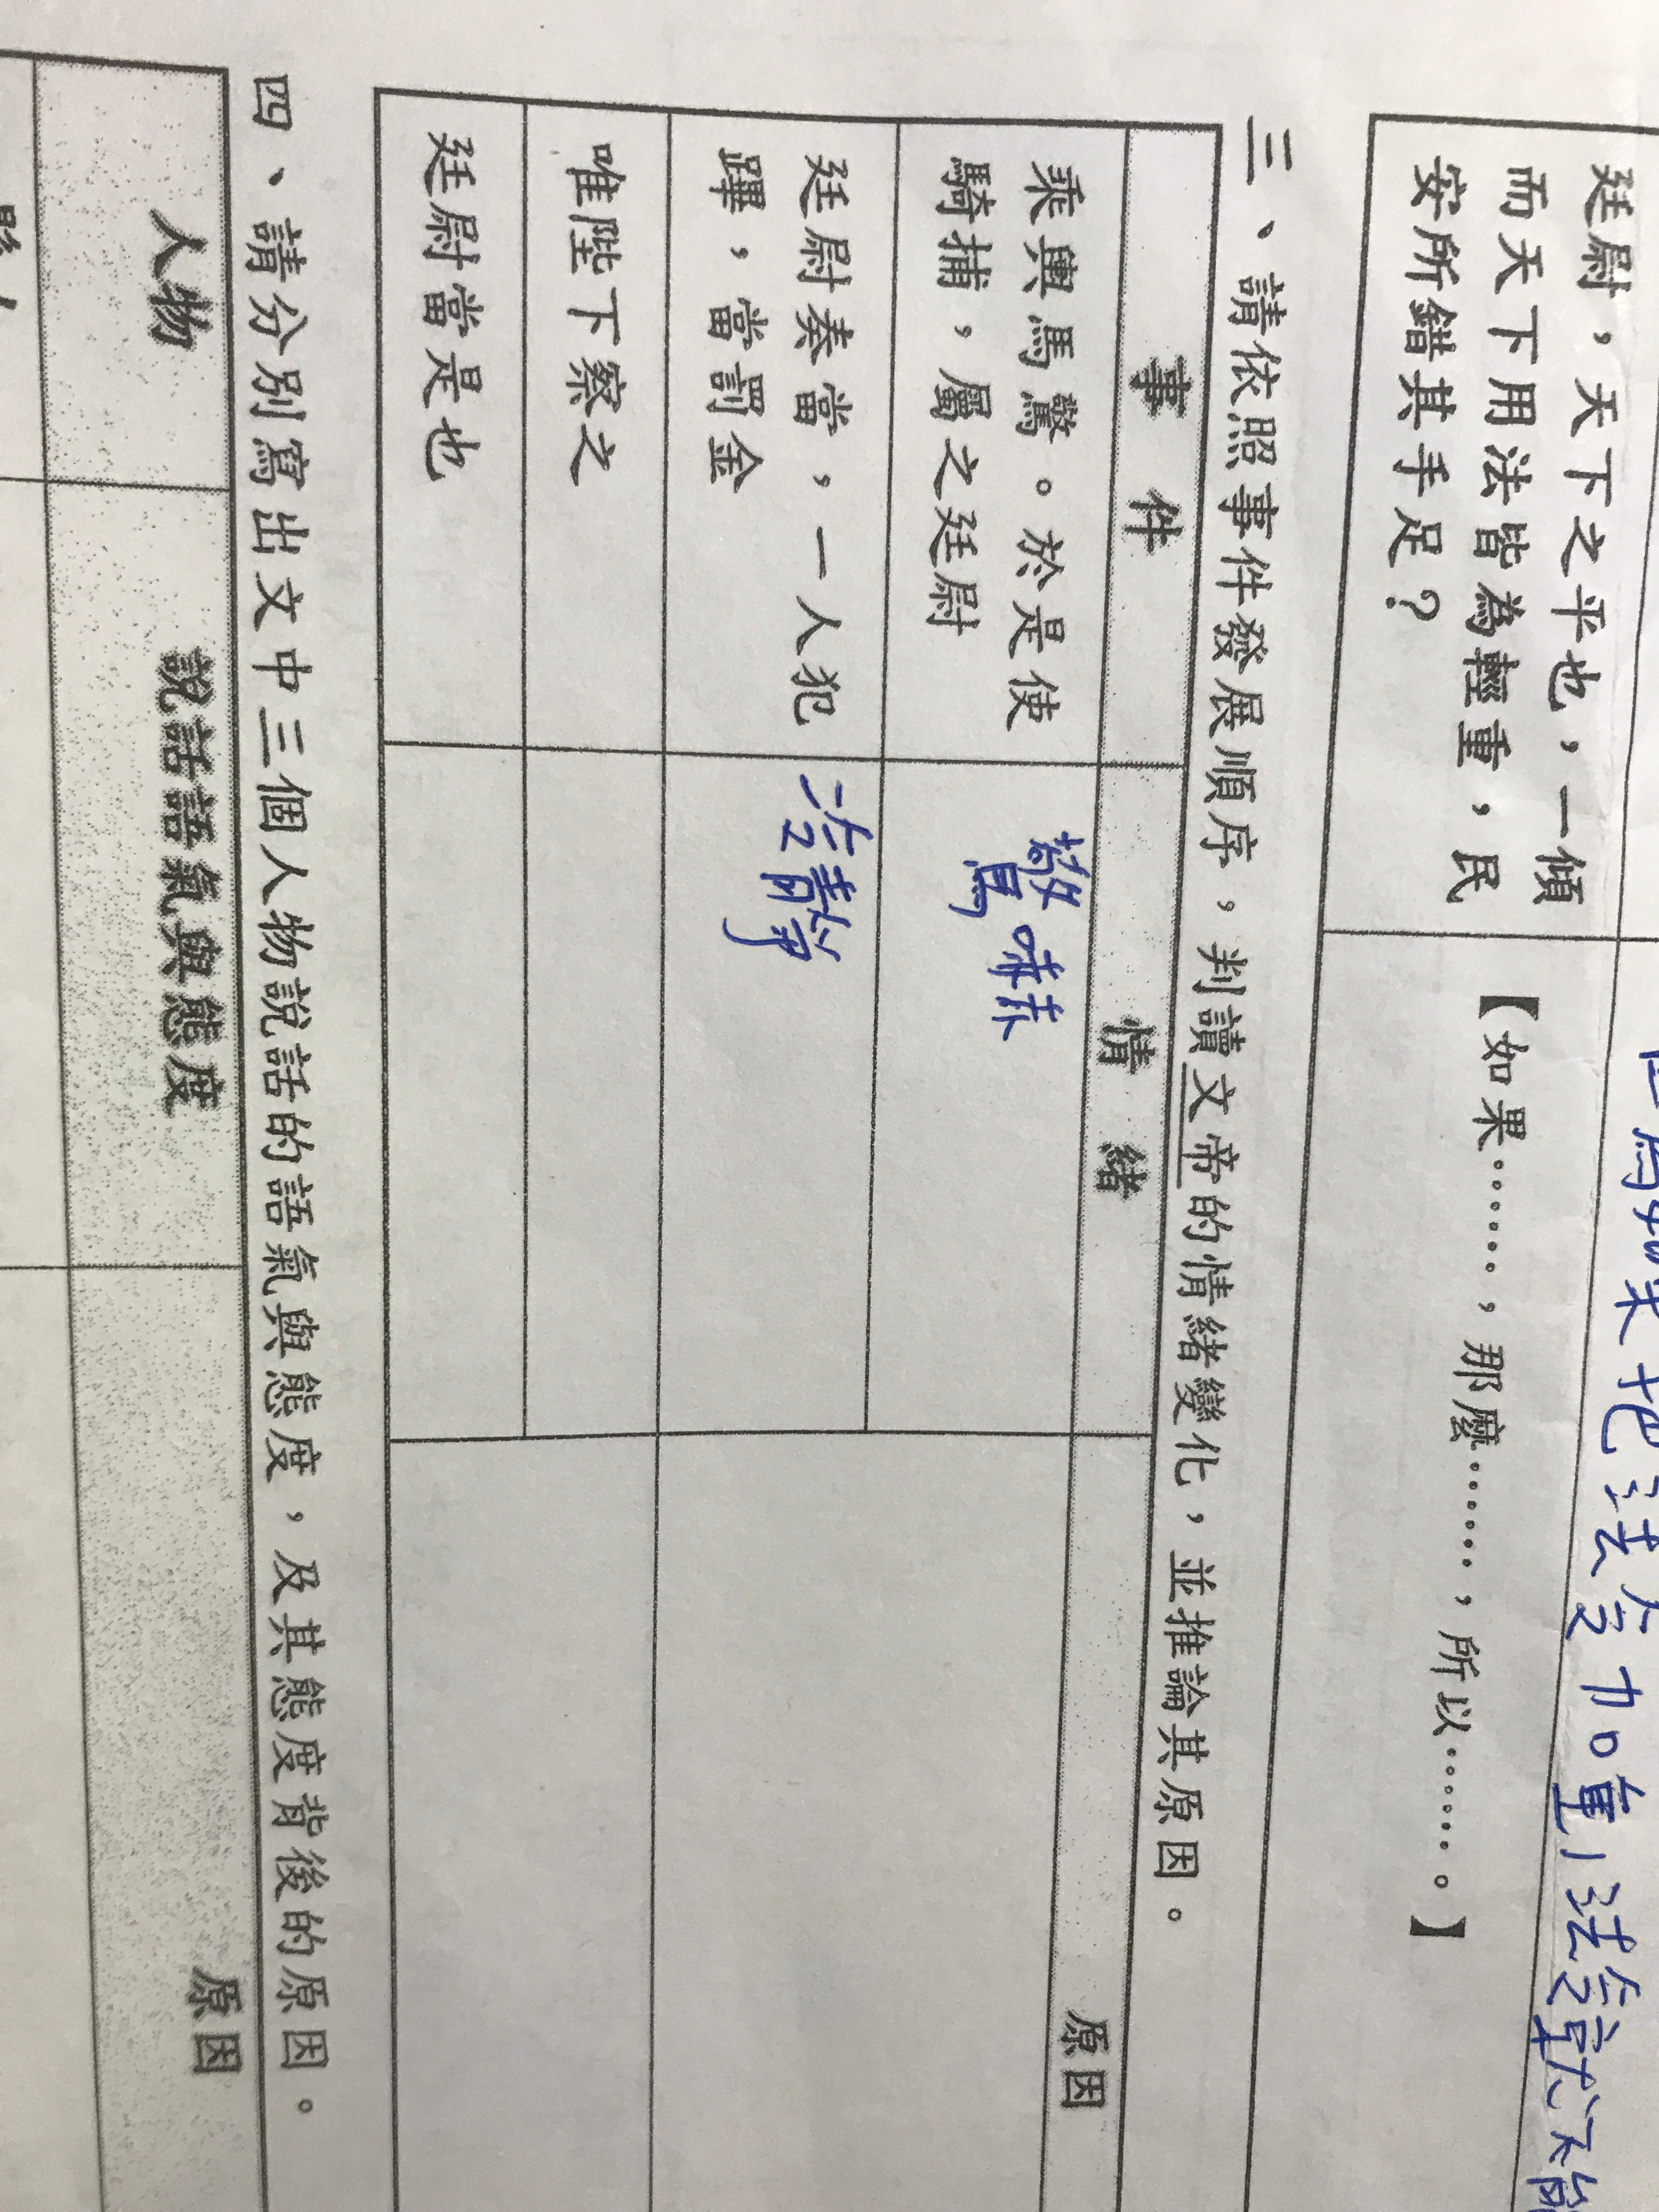 廷尉，天下之平也，一傾
而天下用法皆為輕重，民
安所錯其手足？
如果把法令加重，法令就不能
【如果……，那麼……，所以……。】
三、請依照事件發展順序，判讀文帝的情緒變化，並推論其原因。
事件
情緒
原因
乘輿馬驚。於是使
騎捕，屬之廷尉
驚嚇
廷尉奏當，一人犯
蹕，當罰金
冷靜
唯陛下察之
廷尉當是也
四、請分別寫出文中三個人物說話的語氣與態度，及其態度背後的原因。
人物
說話語氣與態度
原因